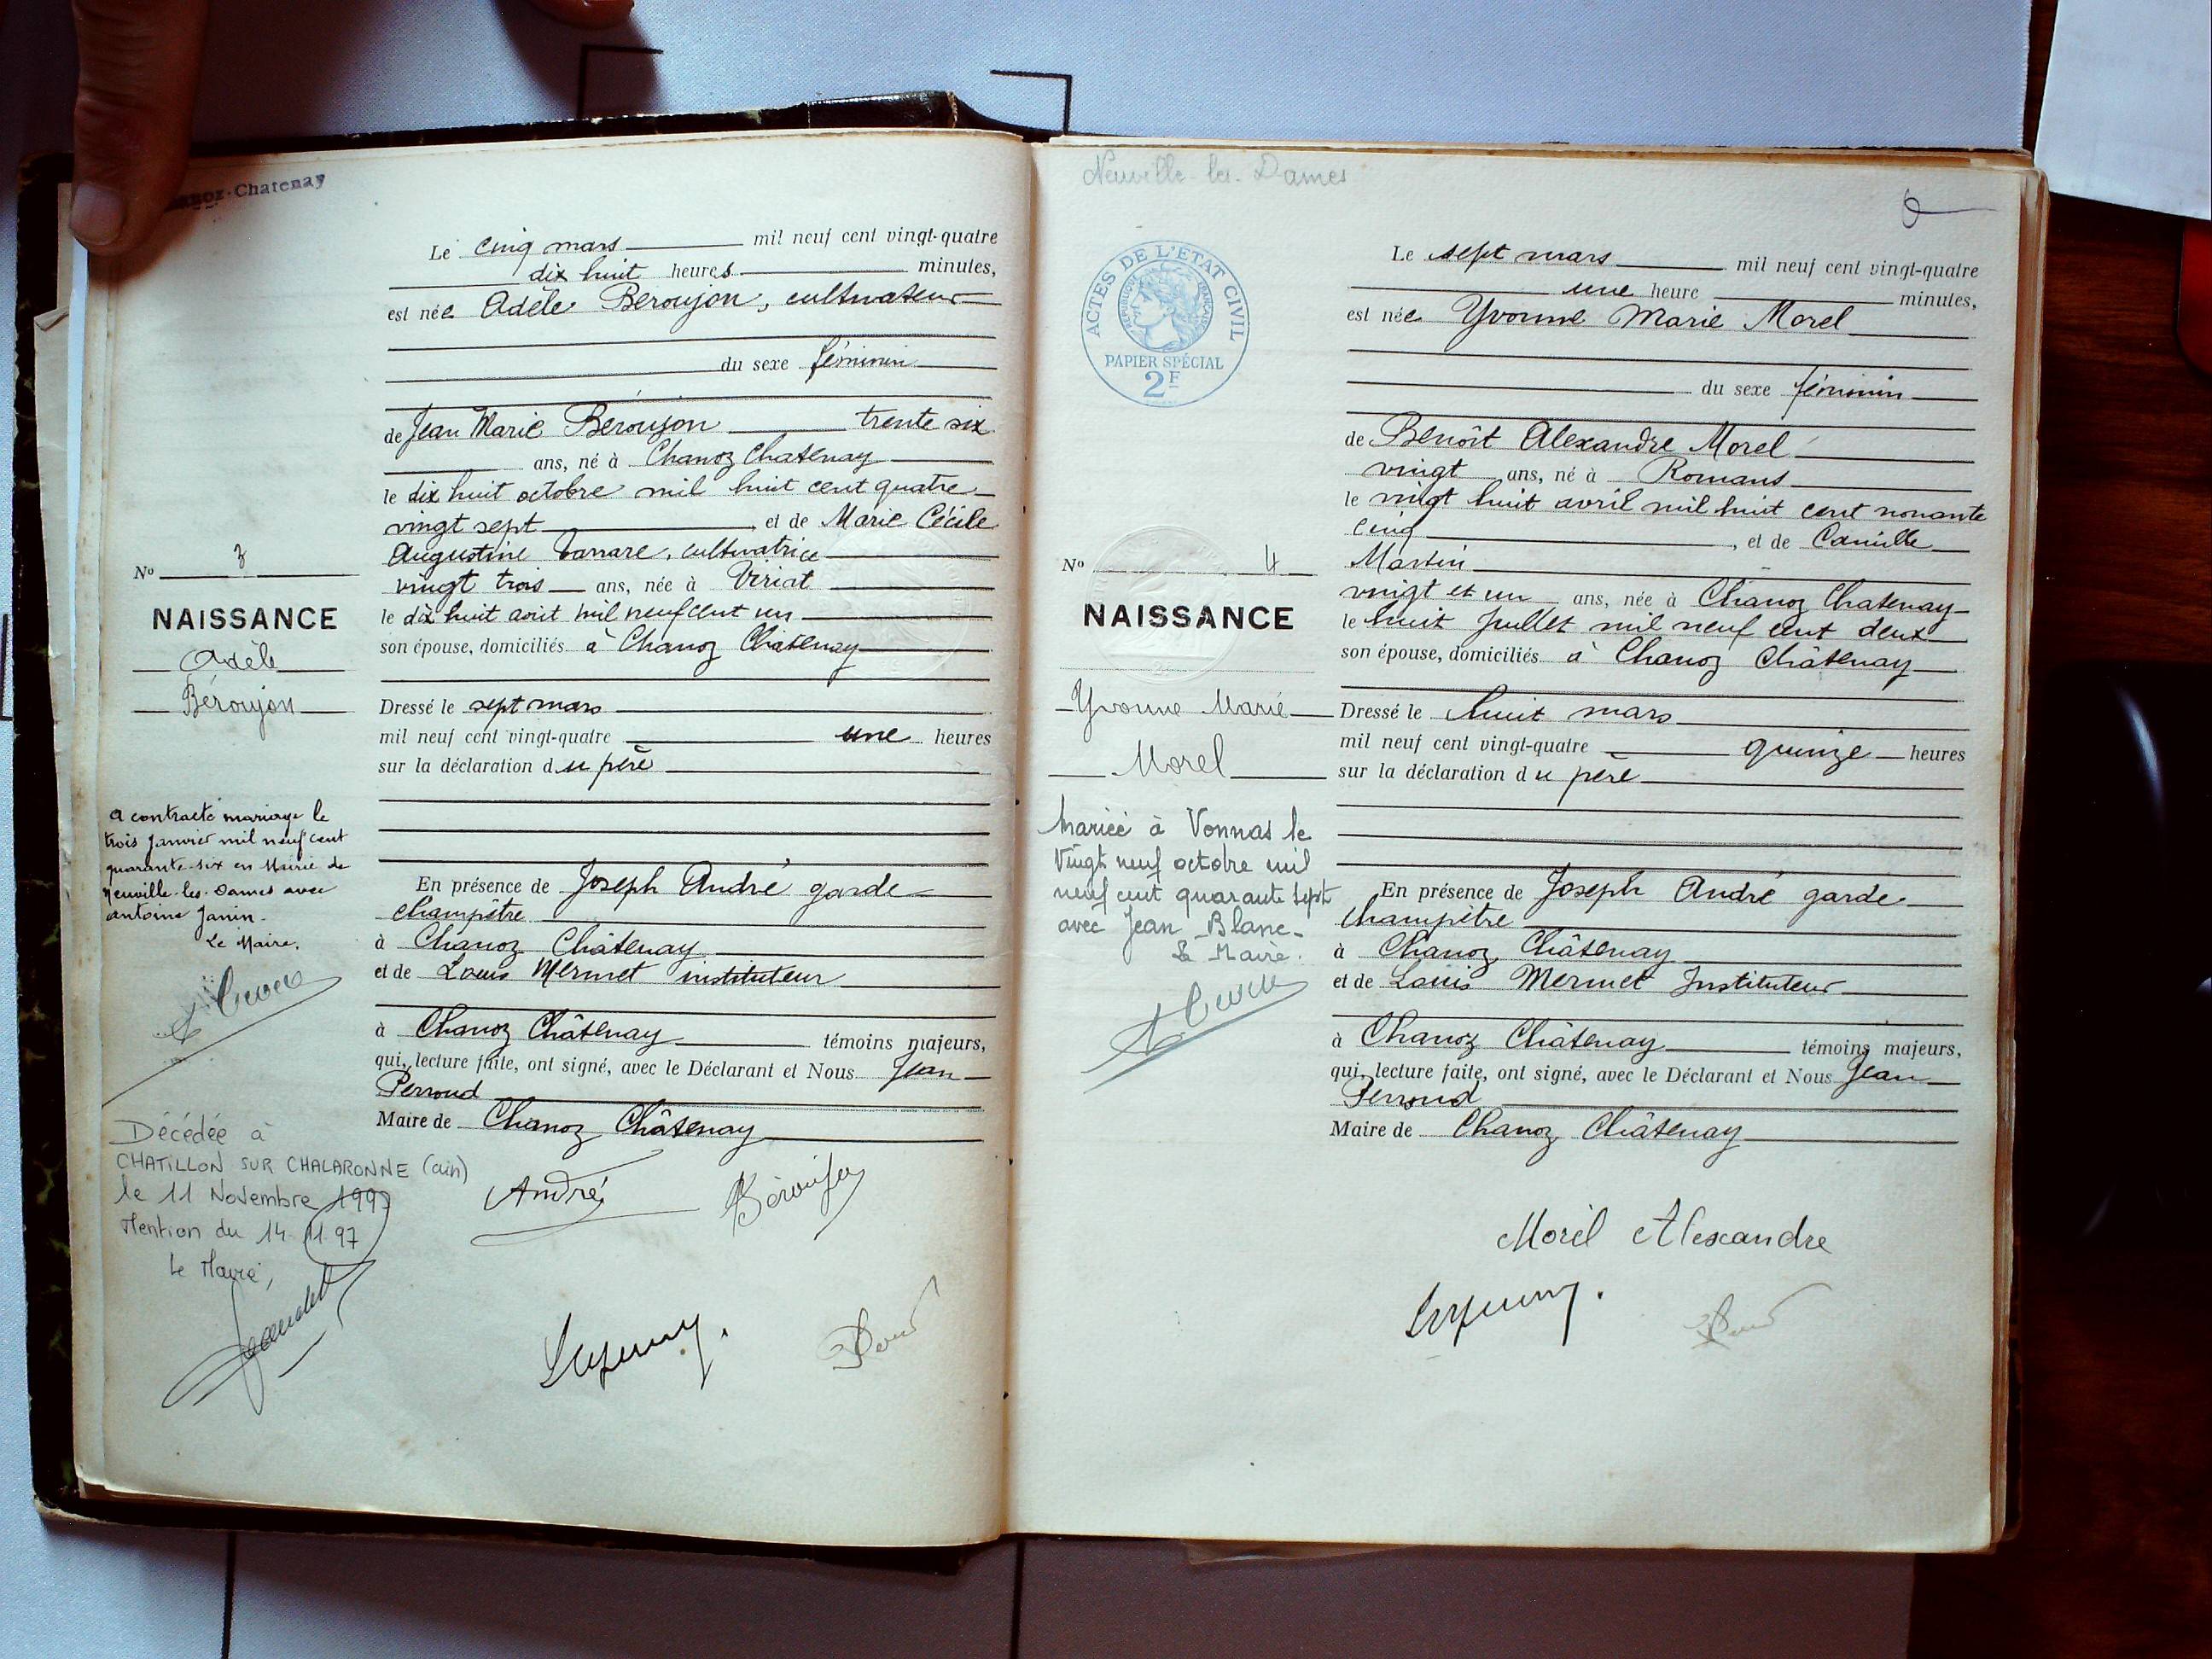 Chanoz-Chatenay
Le cinq mars mil neuf cent vingt-quatre
dix huit heures minutes,
est née Adèle Beroujon, cultivateur
du sexe féminin
de Jean Marie Béroujon trente six
ans, né à Chanoz Chatenay
le dix huit octobre mil huit cent quatre
vingt sept et de Marie Cécile
Augustine cultivatrice
vingt trois ans, née à Viriat
le dix huit août mil neuf cent un
son épouse, domiciliés à Chanoz Chatenay
Dressé le sept mars
mil neuf cent vingt-quatre une heures
sur la déclaration du père
En présence de Joseph André garde
champêtre
à Chanoz Châtenay
et de Louis Mermet instituteur
à Chanoz Châtenay témoins majeurs,
qui, lecture faite, ont signé, avec le Déclarant et Nous Jean
Perroud
Maire de Chanoz Châtenay
André Béroujon
No 3
NAISSANCE
Adèle
Béroujon
A contracté mariage le
trois Janvier mil neuf cent
quarante-six en Mairie de
Neuville-les-Dames avec
Antoine Janin.
Le Maire,
Décédée à
CHATILLON SUR CHALARONNE (ain)
le 11 Novembre 1997
Mention du 14 11 97
Le Maire,
Neuville-les-Dames
6
ACTES DE L'ETAT CIVIL
REPUBLIQUE FRANÇAISE
PAPIER SPÉCIAL
2F
Le sept mars mil neuf cent vingt-quatre
une heure minutes,
est née Yvonne Marie Morel
du sexe féminin
de Benoît Alexandre Morel
vingt ans, né à Romans
le vingt huit avril mil huit cent nonante
cinq, et de Camille
Martin
vingt et un ans, née à Chanoz Chatenay
le huit Juillet mil neuf cent deux
son épouse, domiciliés à Chanoz Châtenay
Dressé le huit mars
mil neuf cent vingt-quatre quinze heures
sur la déclaration du père
En présence de Joseph André garde
champêtre
à Chanoz Châtenay
et de Louis Mermet Instituteur
à Chanoz Châtenay témoins majeurs,
qui, lecture faite, ont signé, avec le Déclarant et Nous Jean
Perroud
Maire de Chanoz Châtenay
Morel Alexandre
No 4
NAISSANCE
Yvonne Marie
Morel
Mariée à Vonnas le
Vingt neuf octobre mil
neuf cent quarante sept
avec Jean Blanc
Le Maire.